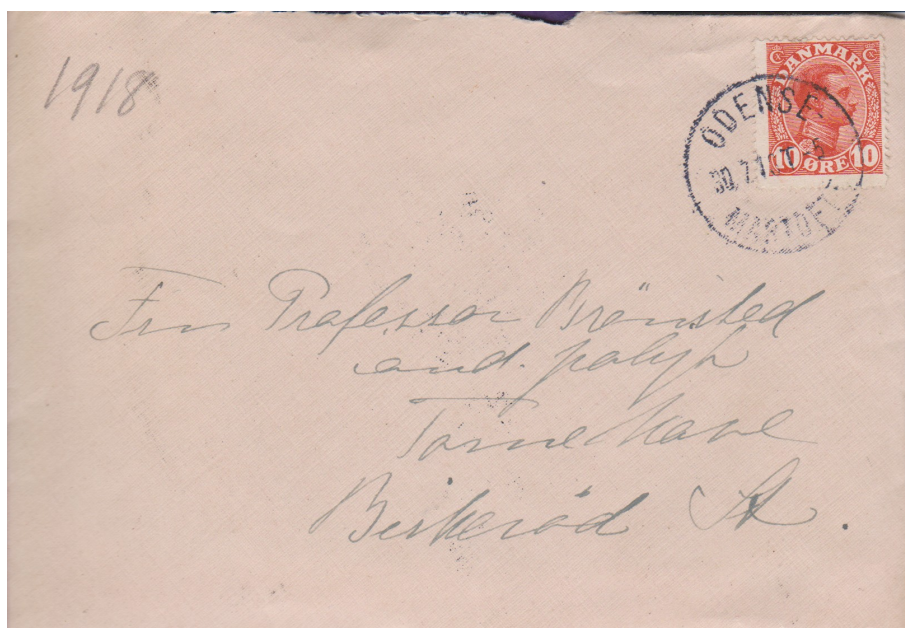 1918
DANMARK
10 ØRE 10
ODENSE
Fru Professor Brönsted
cand. polyt
Tornehave
Birkeröd St.